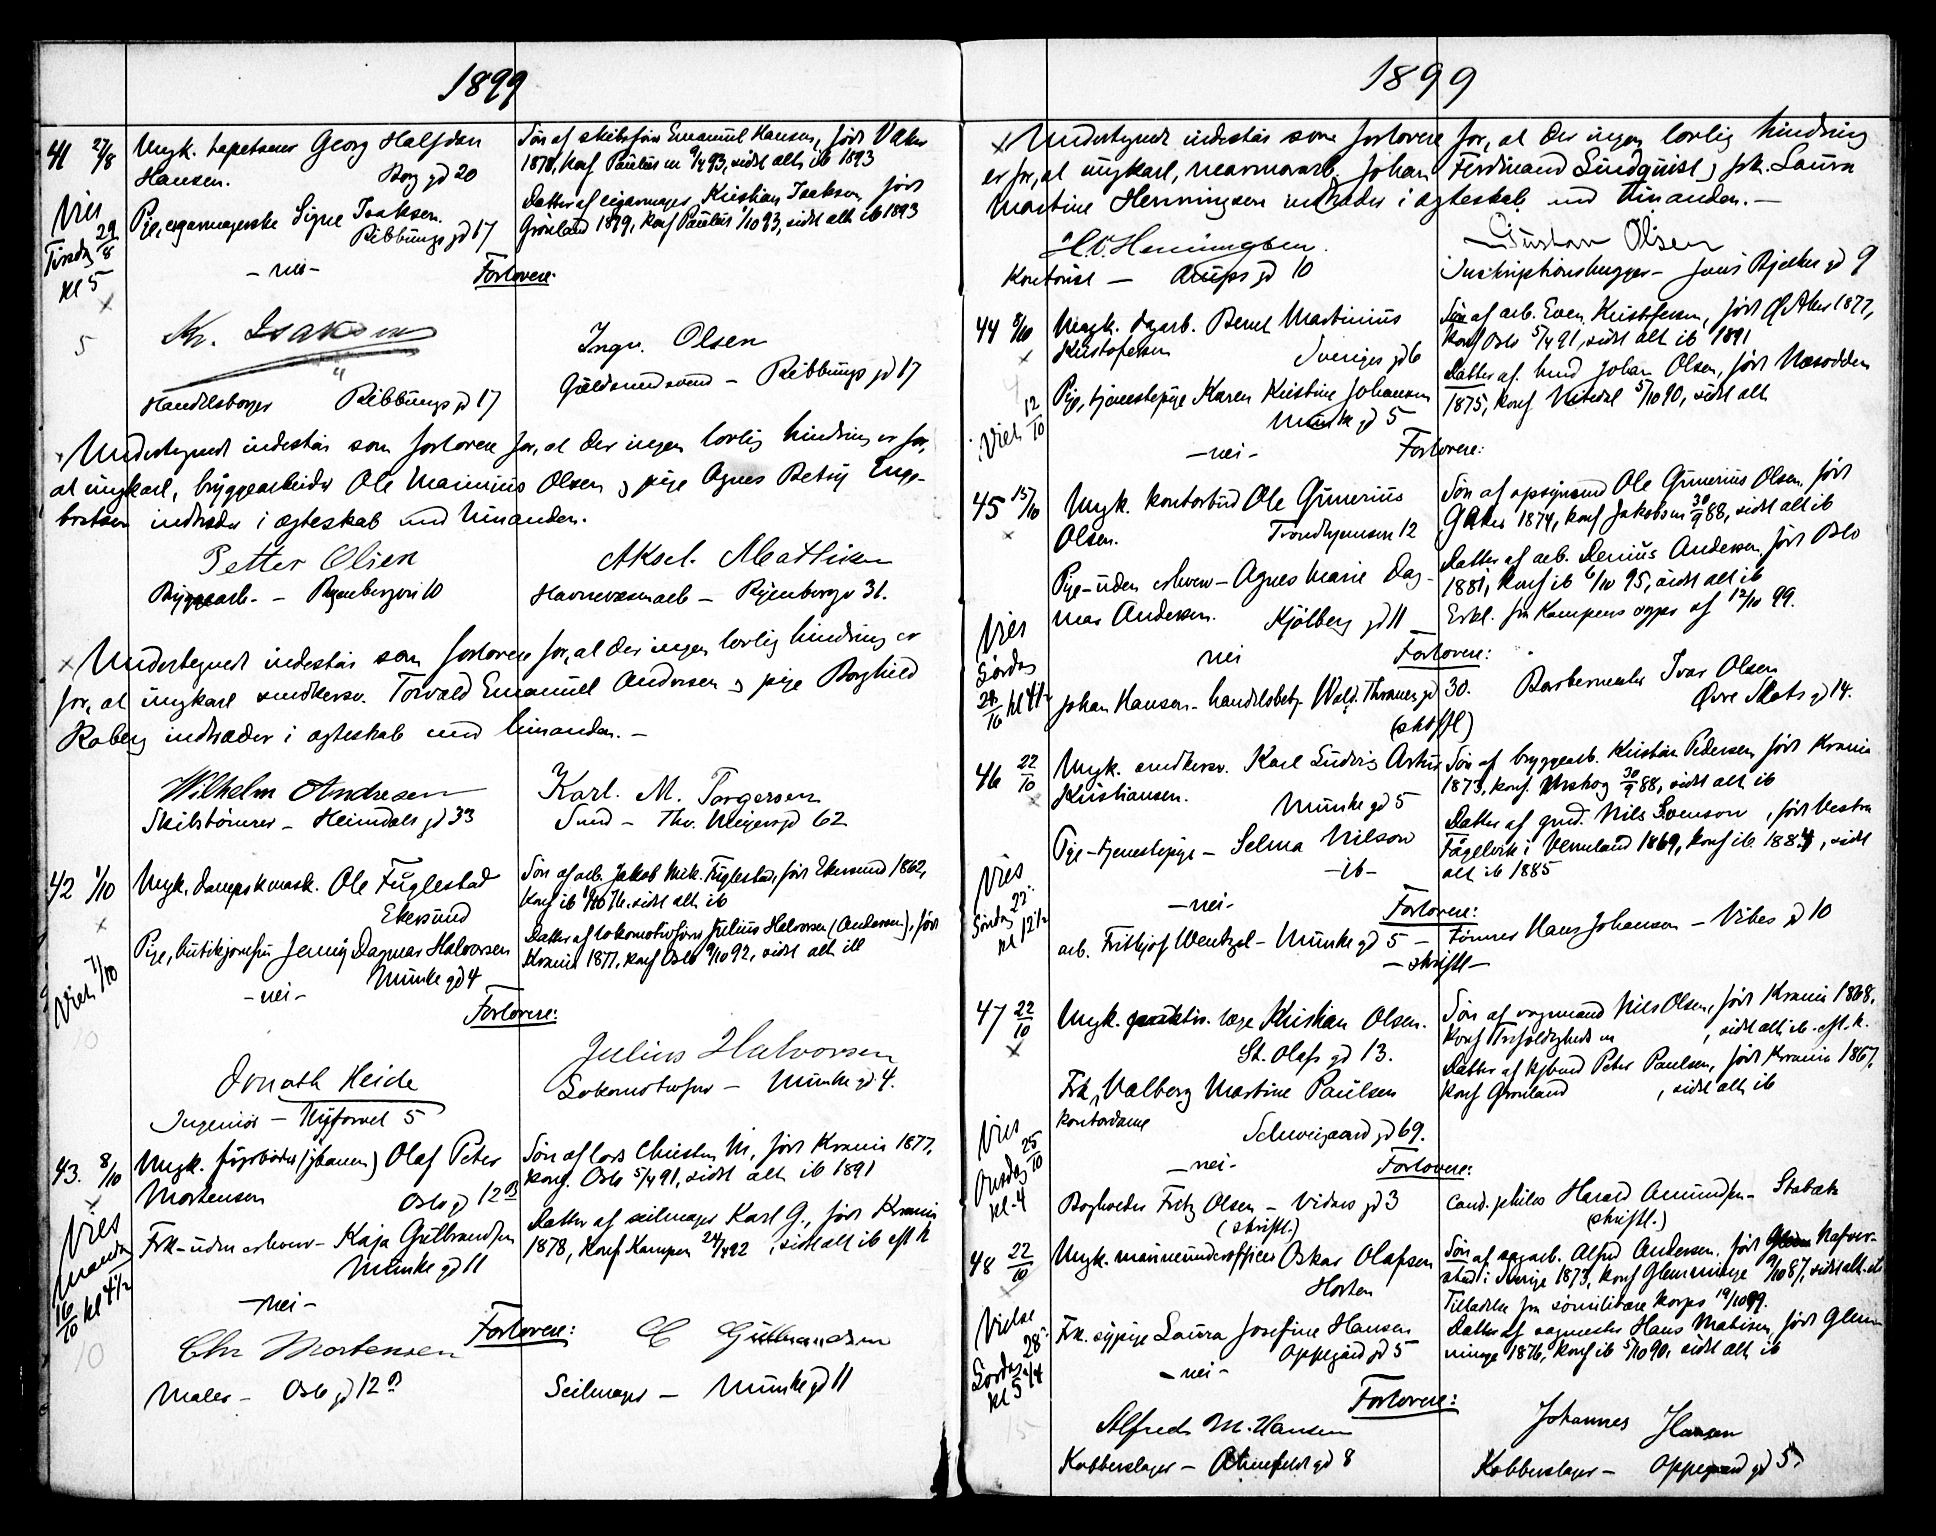 1899
41 27/8 Ungk. tapetserer Georg Halfdan
Hansen. Borg gd 20
Søn af skibsfører Emanuel Hansen, født V Aker
1878, konf Paulus m 9/4 93, sidst alt ib 1893
Vies
Tirsdag 29/8
kl 5
Pige, cigarmagerske Signe Isaksen.
Ribbungs gd 17
Datter af cigarmager Kristian Isaksen født
Grønland 1879, konf Paulus 1/10 93, sidst alt ib 1893
- nei -
Forlovere:
5
Kr. Isaksen
Ingv. Olsen
Handelsborger Ribbungs gd 17
Guldsmedsvend - Ribbungs gd 17
x Undertegnede indestår som forlovere for, at der ingen lovlig hindring er for,
at ungkarl, bryggearbeider Ole Marinius Olsen og pige Agnes Betsy Inge-
bretsen indtræder i ægteskab med hinanden.
Petter Olsen
Aksel. Mathisen
Bryggearb. - Ryenbergvei 10
Havnevæsenarb - Ryenbergv 31.
x Undertegnede indestår som forlovere for, at der ingen lovlig hindring er
for, at ungkarl snedkersv. Torvald Emanuel Andersen og pige Borghild
Raberg indtræder i ægteskab med hinanden. -
Wilhelm Andresen
Karl. M. Torgersen
Skibstømrer - Heimdals gd 33
Smed - Thv. Meyersgd 62
42 1/10 Ungk. dampskmask. Ole Fuglestad
Ekersund
Søn af arb. Jakob Mik. Fuglestad, født Ekersund 1862,
konf ib 1/10 76. sidst alt ib
x
Viet 7/10
Pige, butikjomfru Jenny Dagmar Halvorsen
Munke gd 4
Datter af lokomotivfører Julius Halvorsen (Andersen), født
Krania 1877, konf Oslo 9/10 92, sidst alt ib
- nei -
Forlovere:
10
Jonath Heide
Julius Halvorsen
Ingeniør - Nytorvet 5
Lokomotivfører - Munke gd 4.
43. 8/10 Ungk. fyrbøder (jbanen) Olaf Peter
Mortensen Oslo gd 12 B
Søn af lods Christen M, født Krania 1877,
konf. Oslo 5/4 91, sidst alt ib 1891
x
Vies
Mandag
16/10 kl 4 1/2
Frk - uden erhverv - Kaja Gulbrandsen
Munke gd 11
Datter af seilmager Karl G., født Krania
1878, konf Kampen 24/4 92, sidst alt ib eft k
- nei -
Forlovere:
10
Chr Mortensen
C Gulbrandsen
Maler - Oslo gd 12 B
Seilmager - Munke gd 11
1899
x Undertegnede indestår som forlovere for, at der ingen lovlig hindring
er for, at ungkarl, marmorarb. Johan Ferdinand Lindquist og frk. Laura
Martine Henningsen indtræder i ægteskab med hinanden. -
H.V. Henningsen.
Gustav Olsen
Kontorist - Arups gd 10
Inskriptionshugger - Jens Bjelkes gd 9
44 8/10 Ungk. dagarb. Bernt Martinius
Kristofersen Sveriges gd 6
Søn af arb. Even Kristofersen, født Ø Aker 1877,
konf Oslo 5/4 91, sidst alt ib 1891
x
Viet 12/10
Pige, tjenestepige Karen Kristine Johansen
Munke gd 5
Datter af. hmd Johan Olsen, født Næsodden
1875, konf Nitedal 5/10 90, sidst alt
- nei -
Forlovere:
45 15/10 Ungk. kontorbud Ole Gunerius
Olsen. Trondhjemsvn 12
Søn af opsynsmd Ole Gunerius Olsen, født
Ø Aker 1874, konf Jakobs m 30/9 88, sidst alt ib
x
Pige - uden erhverv - Agnes Marie Dag-
mar Andersen. Kjølberg gd 11
Datter af arb. Denius Andersen, født Oslo
1881, konf ib 6/10 95, sidst alt ib
Erkl. fra Kampens sogn af 12/10 99.
Vies
Lørdag
28/10 kl 4 1/2
nei
Forlovere:
Johan Hansen - handelsbetj. Wald. Thranes gd 30.
Barbermester Ivar Olsen
Øvre Slots gd 14.
(skriftl)
46 22/10 Ungk. snedkersv. Karl Ludvig Artur
Kristiansen. Munke gd 5
Søn af bryggearb. Kristian Pedersen, født Krania
1873, konf. Urskog 30/9 88, sidst alt ib
x
Pige - tjenestepige - Selma Nilson
- ib -
Datter af grd. Nils Svenson, født Vestra
Fågelvik i Vermland 1869, konf ib 1884, sidst
alt ib 1885
Vies
Søndag 22:
kl 12 1/2
- nei -
Forlovere:
arb. Fritjof Wentzel - Munke gd 5 - Tømrer Hans Johansen - Vibes gd 10
- skriftl -
47 22/10 Ungk. praktis. læge Kristian Olsen.
St. Olafs gd 13.
Søn af vognmand Nils Olsen, født Krania 1868,
konf Trefoldigheds m , sidst alt ib. eft. k.
x
Frk, Valborg Martine Paulsen
kontordame Schweigaard gd 69.
Datter af kjbmd Peter Paulsen, født Krania 1867,
konf Grønland , sidst alt ib
Vies
Onsdag 25/10
kl. 4
- nei -
Forlovere:
Bogholder Fritz Olsen - Vidars gd 3
(skriftl.)
Cand. philos Harald Amundsen - Stabæk
(skriftl.)
48 22/10 Ungk. marineunderofficer Oskar Olafsen
Horten
Søn af sagarb. Alfred Andersen, født Nafver-
stad i Sverige 1873, konf Glemminge 9/10 87, sidst alt. ib
Tilladelse fra sømilitære korps 19/10 99.
Vielse
28:
Lørdag
kl 5 1/4
Frk. sypige Laura Josefine Hansen
Oppegård gd 5
Datter af sagmester Hans Matisen, født Glem-
minge 1876, konf ib 5/10 90, sidst alt ib
- nei -
Forlovere:
15
Alfred M. Hansen
Johannes Hansen
Kobberslager - gd 8
Kobberslager - Oppegaard gd 5